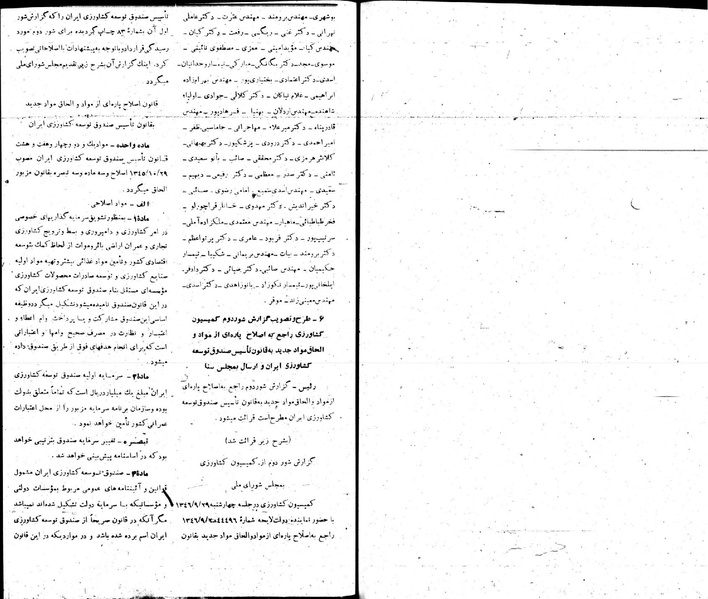 بوشهری - مهندس برومند - مهندس عترت - دکتر عاملی
تهرانی - دکتر غنی - ریگی - رفعت - دکتر کیان -
مهندس کیا - امینی - معزی - مصطفوی نائینی -
موسوی - مجد - دکتر - مبارکی - روحانیان -
اسدی - دکتر اعتمادی - بختیاری پور - مهندس بهرامزاده
ابراهیمی - غلام نیاکان - دکتر کلالی - جوادی - اولیاء
شاهنده - مهندس اردلان - بهنیا - فرهادپور - مهندس
قادرپناه - دکتر میرعلاء - مهاجرانی - جاماسبی - ظفر -
امیراحمدی - دکتر درودی - پزشکپور - دکتر بهبهانی -
کلانتر هرمزی - دکتر محققی - صائب - بانو سعیدی -
ثامنی - دکتر صدر - معظمی - دکتر رفیعی - دیهیم -
سعیدی - مهندس اسدی سمیع - امامی رضوی - صائبی -
دکتر خیراندیش - دکتر مهدوی - خانلر قراچورلو -
فخر طباطبائی - ماهیار - مهندس معتمدی - ملکزاده آملی -
سرتیپ پور - دکتر فربود - عامری - دکتر پرتو اعظم -
دکتر برومند - بیات - مهندس بریمانی - شکیبا - تیمسار
حکیمیان - مهندس صائبی - دکتر ضیائی - دکتر دادفر -
ایلخانی پور - تیمسار نکوزاد - بانو زاهدی - دکتر اسدی -
مهندس معینی زند - موقر .
۶ - طرح و تصویب گزارش شور دوم کمیسیون
کشاورزی راجع به اصلاح پاره‌ای از مواد و
الحاق مواد جدید به قانون تأسیس صندوق توسعه
کشاورزی ایران و ارسال بمجلس سنا
رئیس - گزارش شور دوم راجع به اصلاح پاره‌ای
از مواد و الحاق مواد جدید به قانون تأسیس صندوق توسعه
کشاورزی ایران مطرح است قرائت میشود .
(بشرح زیر قرائت شد)
گزارش شور دوم از کمیسیون کشاورزی
بمجلس شورای ملی
کمیسیون کشاورزی در جلسه چهارشنبه ۱۳۴۶/۹/۲۹
با حضور نماینده دولت لایحه شمارهٔ ۴۴۴۹۶ - ۱۳۴۶/۹/۷
راجع به اصلاح پاره‌ای از مواد و الحاق مواد جدید بقانون
تأسیس صندوق توسعه کشاورزی ایران را که گزارش شور
اول آن بشمارهٔ ۸۳ چاپ گردیده برای شور دوم مورد
رسیدگی قرار داد و با توجه به پیشنهادات با اصلاحاتی تصویب
کرد . اینک گزارش آن بشرح زیر تقدیم مجلس شورای ملی
میگردد
قانون اصلاح پاره‌ای از مواد و الحاق مواد جدید
بقانون تأسیس صندوق توسعه کشاورزی ایران
ماده واحده - مواد یک و دو و چهار و هفت و هشت
قانون تأسیس صندوق توسعه کشاورزی ایران مصوب
۱۳۴۵/۱۰/۲۹ اصلاح و سه ماده و سه تبصره بقانون مزبور
الحاق میگردد .
الف - مواد اصلاحی
ماده۱ - بمنظور تشویق سرمایه گذاریهای خصوصی
در امر کشاورزی و دامپروری و بسط و ترویج کشاورزی
تجاری و عمران اراضی بائر و موات از لحاظ کمک بتوسعه
اقتصادی کشور و تأمین مواد غذائی بیشتر و تهیه مواد اولیه
صنایع کشاورزی و توسعه صادرات محصولات کشاورزی
مؤسسه‌ای مستقل بنام صندوق توسعه کشاورزی ایران که
در این قانون صندوق نامیده میشود تشکیل میگردد و وظیفه
اساسی این صندوق مشارکت و یا پرداخت وام اعطاء و
اعتبار و نظارت در مصرف صحیح وامها و اعتباراتی
است که برای انجام هدفهای فوق از طریق صندوق داده
میشود .
ماده۲ - سرمایه اولیه صندوق توسعه کشاورزی
ایران مبلغ یک میلیارد ریال است که تماماً متعلق بدولت
بوده و سازمان برنامه سرمایه مزبور را از محل اعتبارات
عمرانی کشور تأمین خواهد نمود .
تبصره - تغییر سرمایه صندوق بترتیبی خواهد
بود که در اساسنامه پیش بینی خواهد شد .
ماده۴ - صندوق توسعه کشاورزی ایران مشمول
قوانین و آئیننامه های عمومی مربوط بمؤسسات دولتی
و مؤسساتیکه با سرمایه دولت تشکیل شده‌اند نمیباشد
مگر آنکه در قانون صریحاً از صندوق توسعه کشاورزی
ایران اسم برده شده باشد و در مواردیکه در این قانون